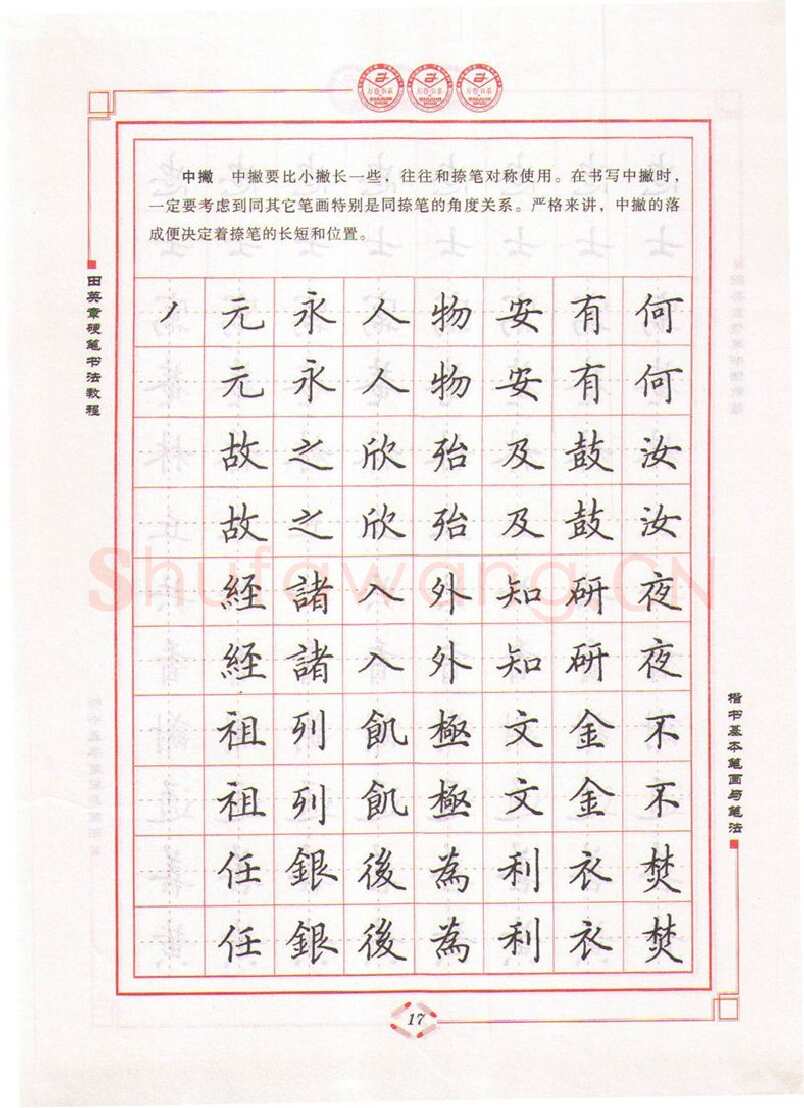 中撇 中撇要比小撇长一些，往往和捺笔对称使用。在书写中撇时，
一定要考虑到同其它笔画特别是同捺笔的角度关系。严格来讲，中撇的落
成便决定着捺笔的长短和位置。
田英章硬笔书法教程
丿 元 永 人 物 安 有 何
元 永 人 物 安 有 何
故 之 欣 殆 及 鼓 汝
故 之 欣 殆 及 鼓 汝
經 諸 入 外 知 研 夜
經 諸 入 外 知 研 夜
祖 列 飢 極 文 金 不
祖 列 飢 極 文 金 不
任 銀 後 為 利 衣 焚
任 銀 後 為 利 衣 焚
Shufawang.CN
楷书基本笔画与笔法
17